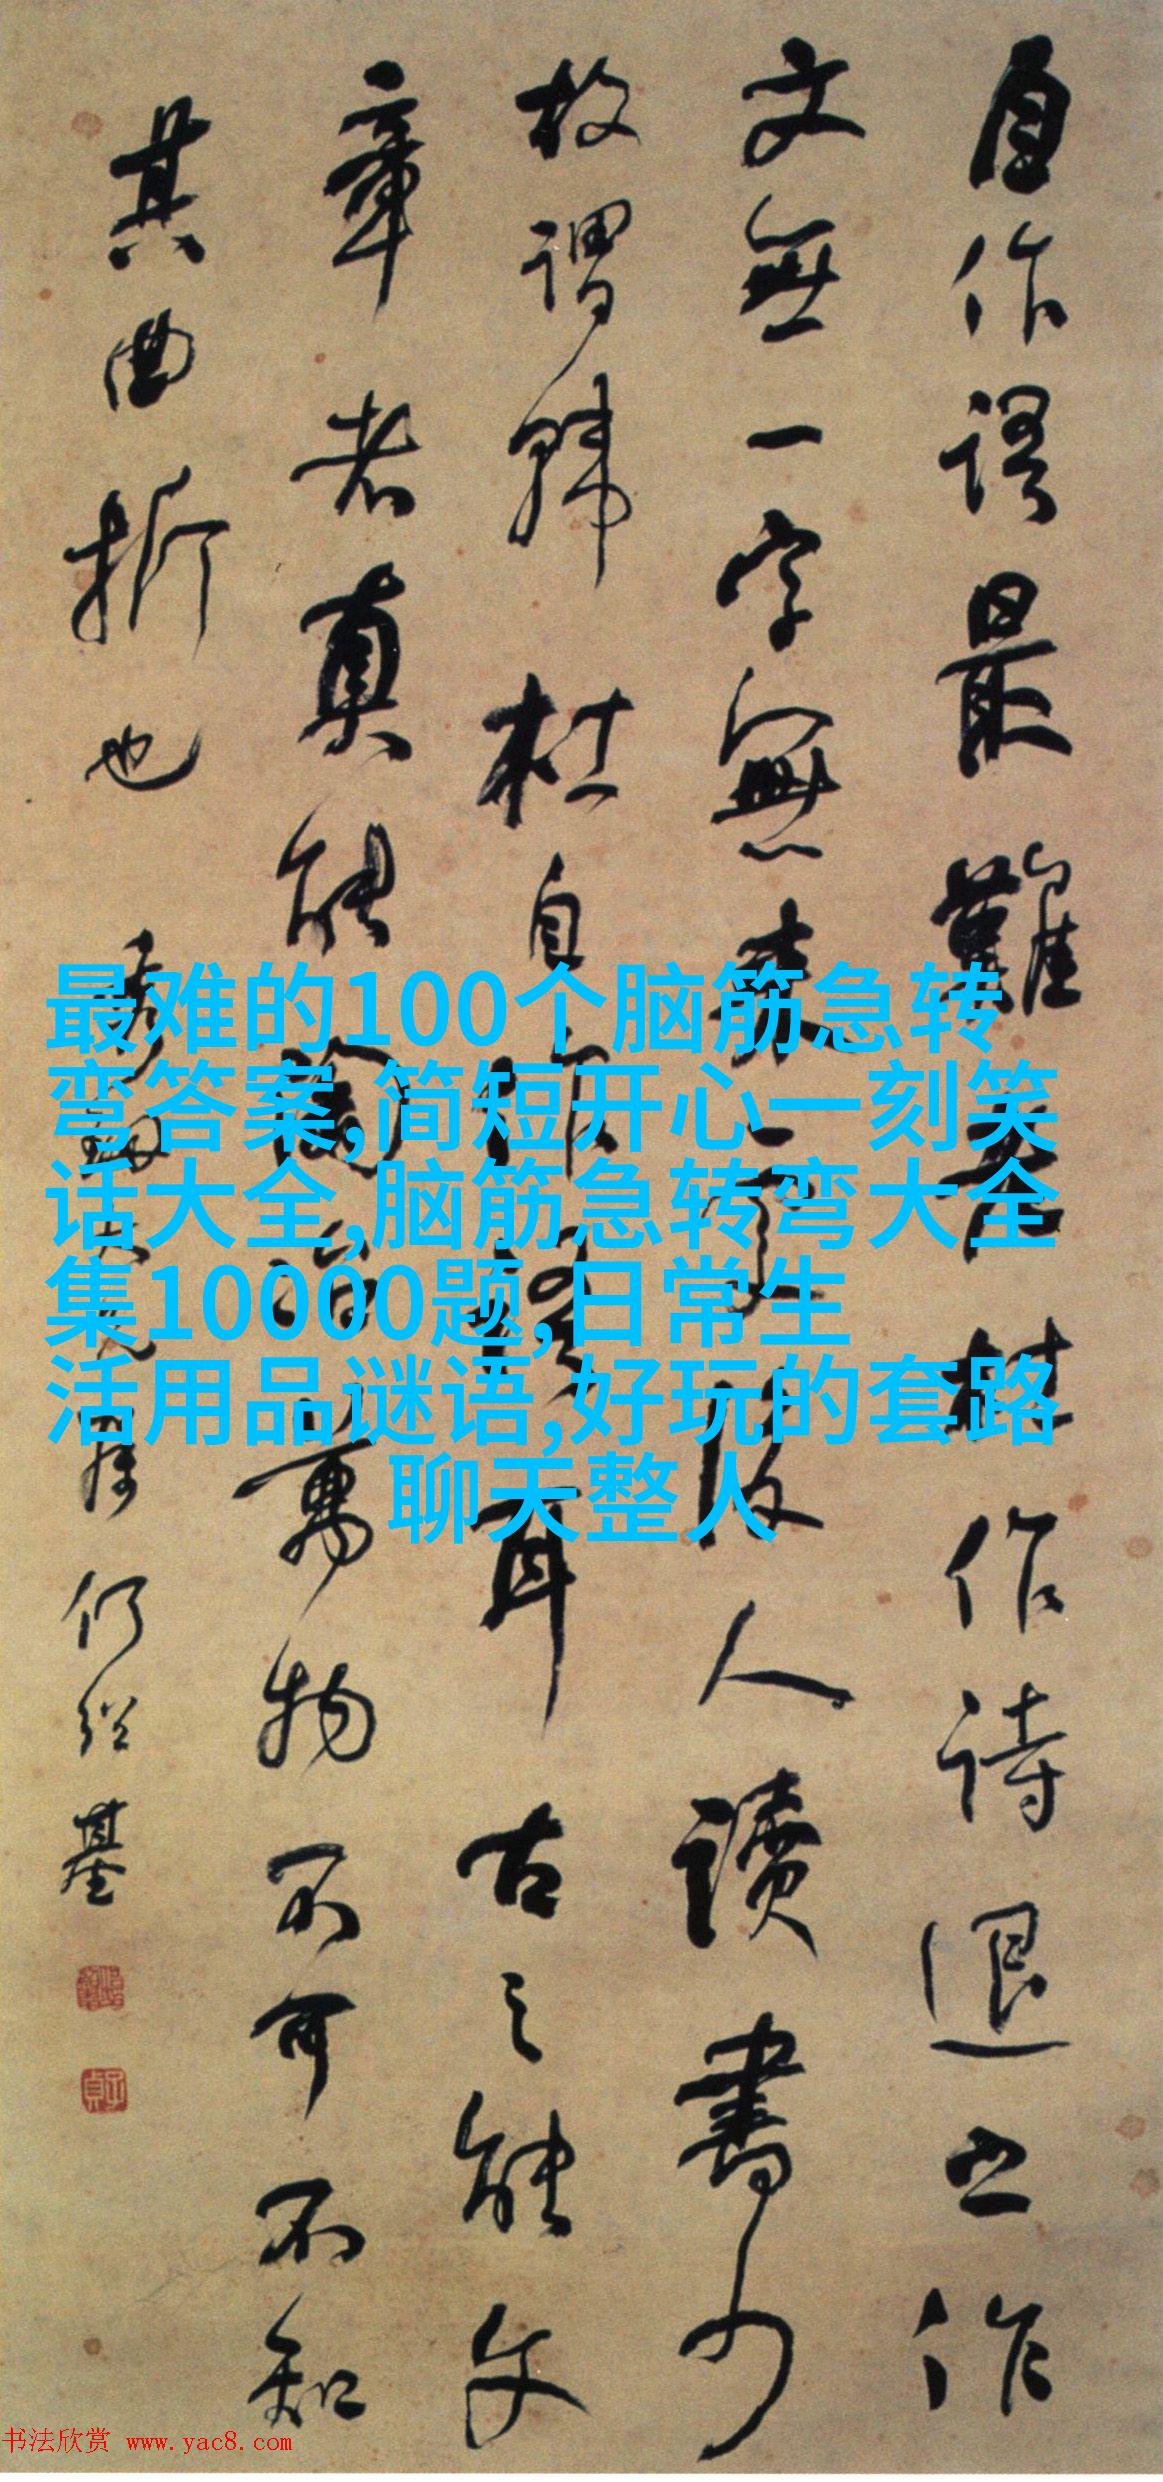 自作语最難老杜作诗退之作
文無一字無来处后人读書少
故謂韩杜自作此語耳古之能文
章者真能陶冶萬物不可不知
其曲折也
仍経基
最难的100个脑筋急转
弯答案,简短开心一刻笑
话大全,脑筋急转弯大全
集10000题,日常生
活用品谜语,好玩的套路
聊天整人
书法欣赏 www.yac8.com